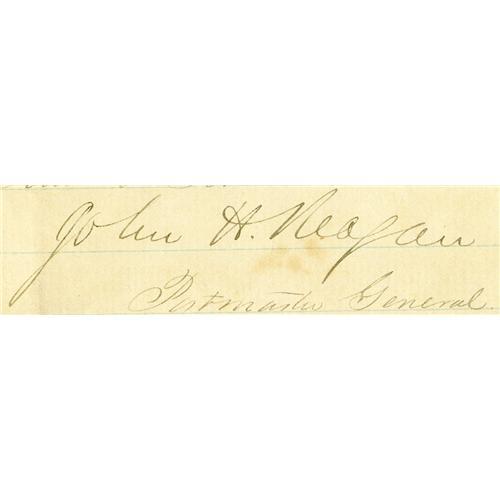 John H. Reagan
Postmaster General.